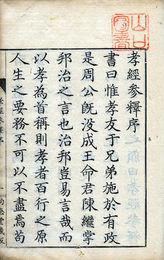 孝經參釋序
書曰惟孝友于兄弟施於有政
是周公旣沒成王命君陳繼掌
邦治之言也治邦豈易言哉而
以孝為首稱則孝者百行之原
人生之要務不可以不盡焉尚